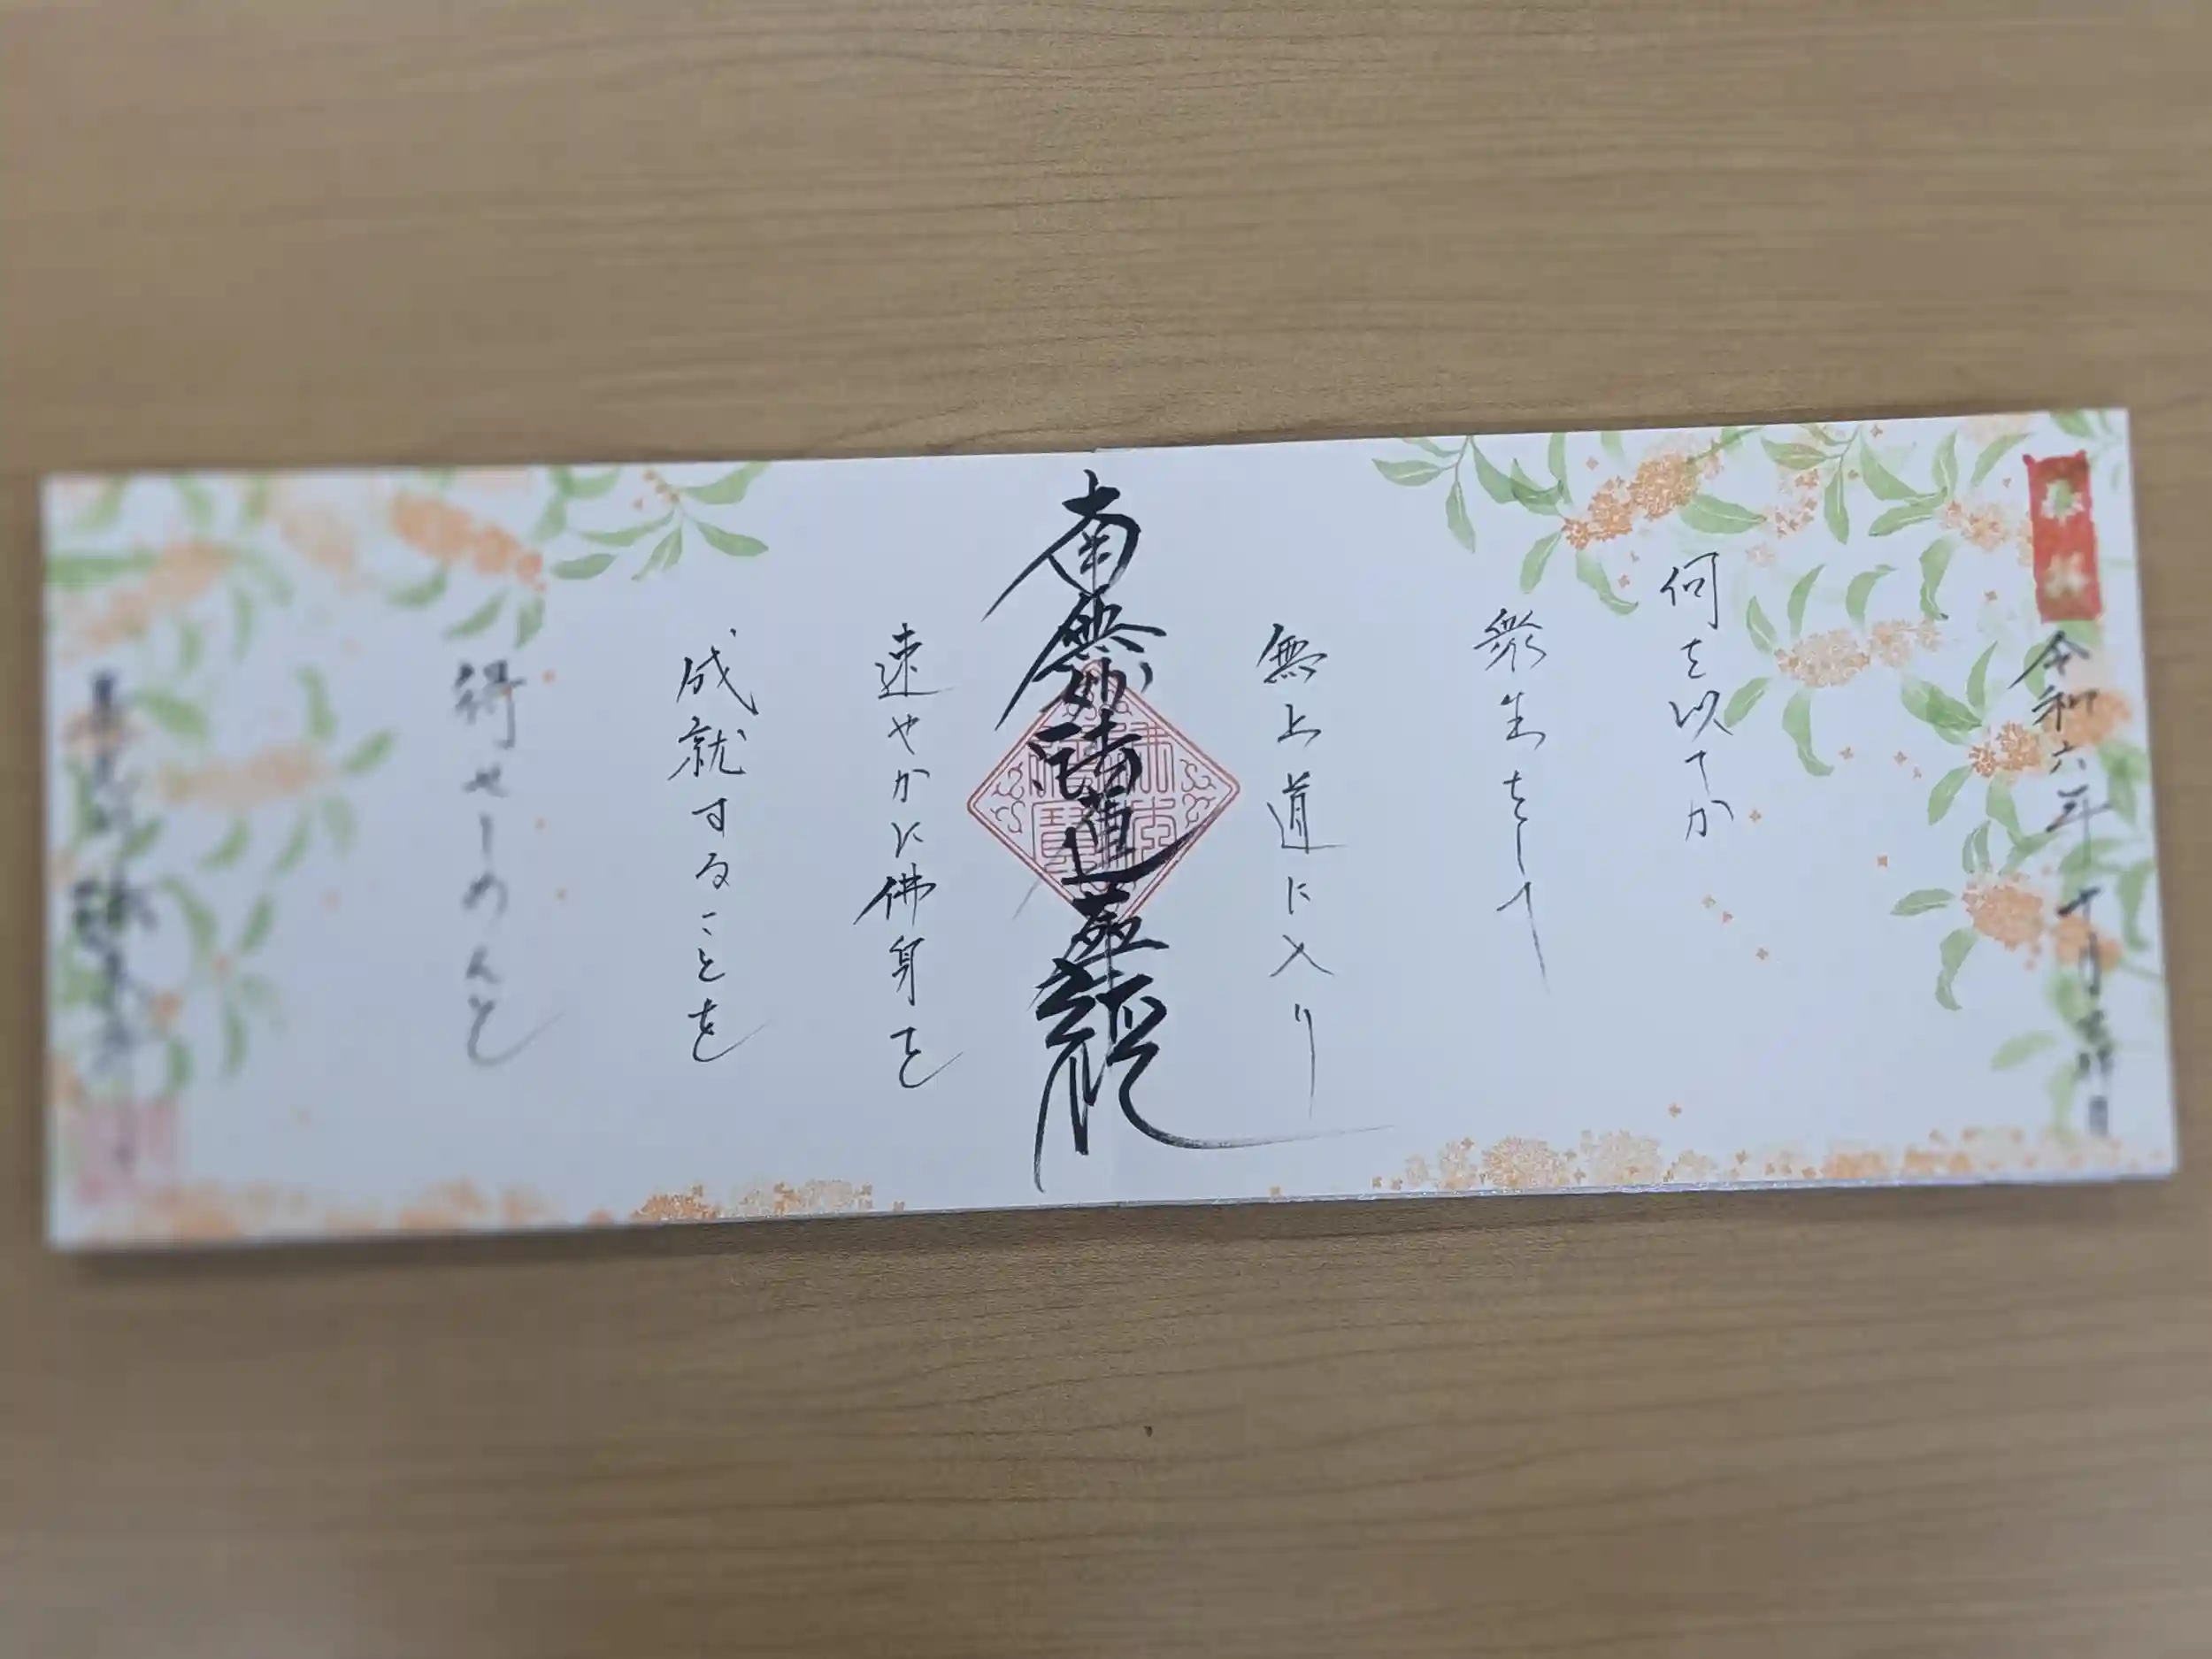 令和六年十月吉祥日
何を以てか
衆生をして
無上道に入り
南無妙法蓮華経
速やかに佛身を
成就することを
得せしめんと